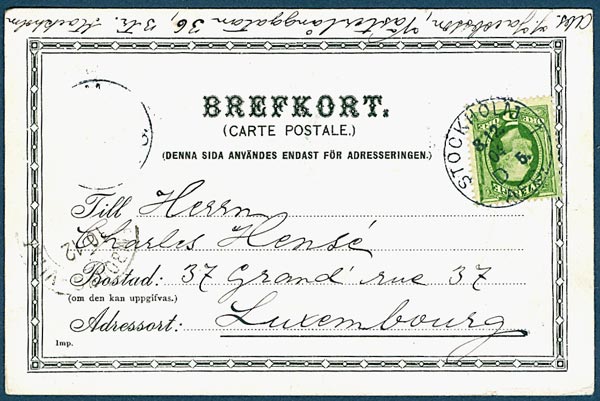 Abs. J. Jacobson, Västerlånggatan 36, 3 tr. Stockholm
BREFKORT.
(CARTE POSTALE.)
(DENNA SIDA ANVÄNDES ENDAST FÖR ADRESSERINGEN.)
STOCKHOLM 1
Till Herrn
Charles Hensé
Bostad: 37 Grand' rue 37
(om den kan uppgifvas.)
Adressort: Luxembourg
Imp.